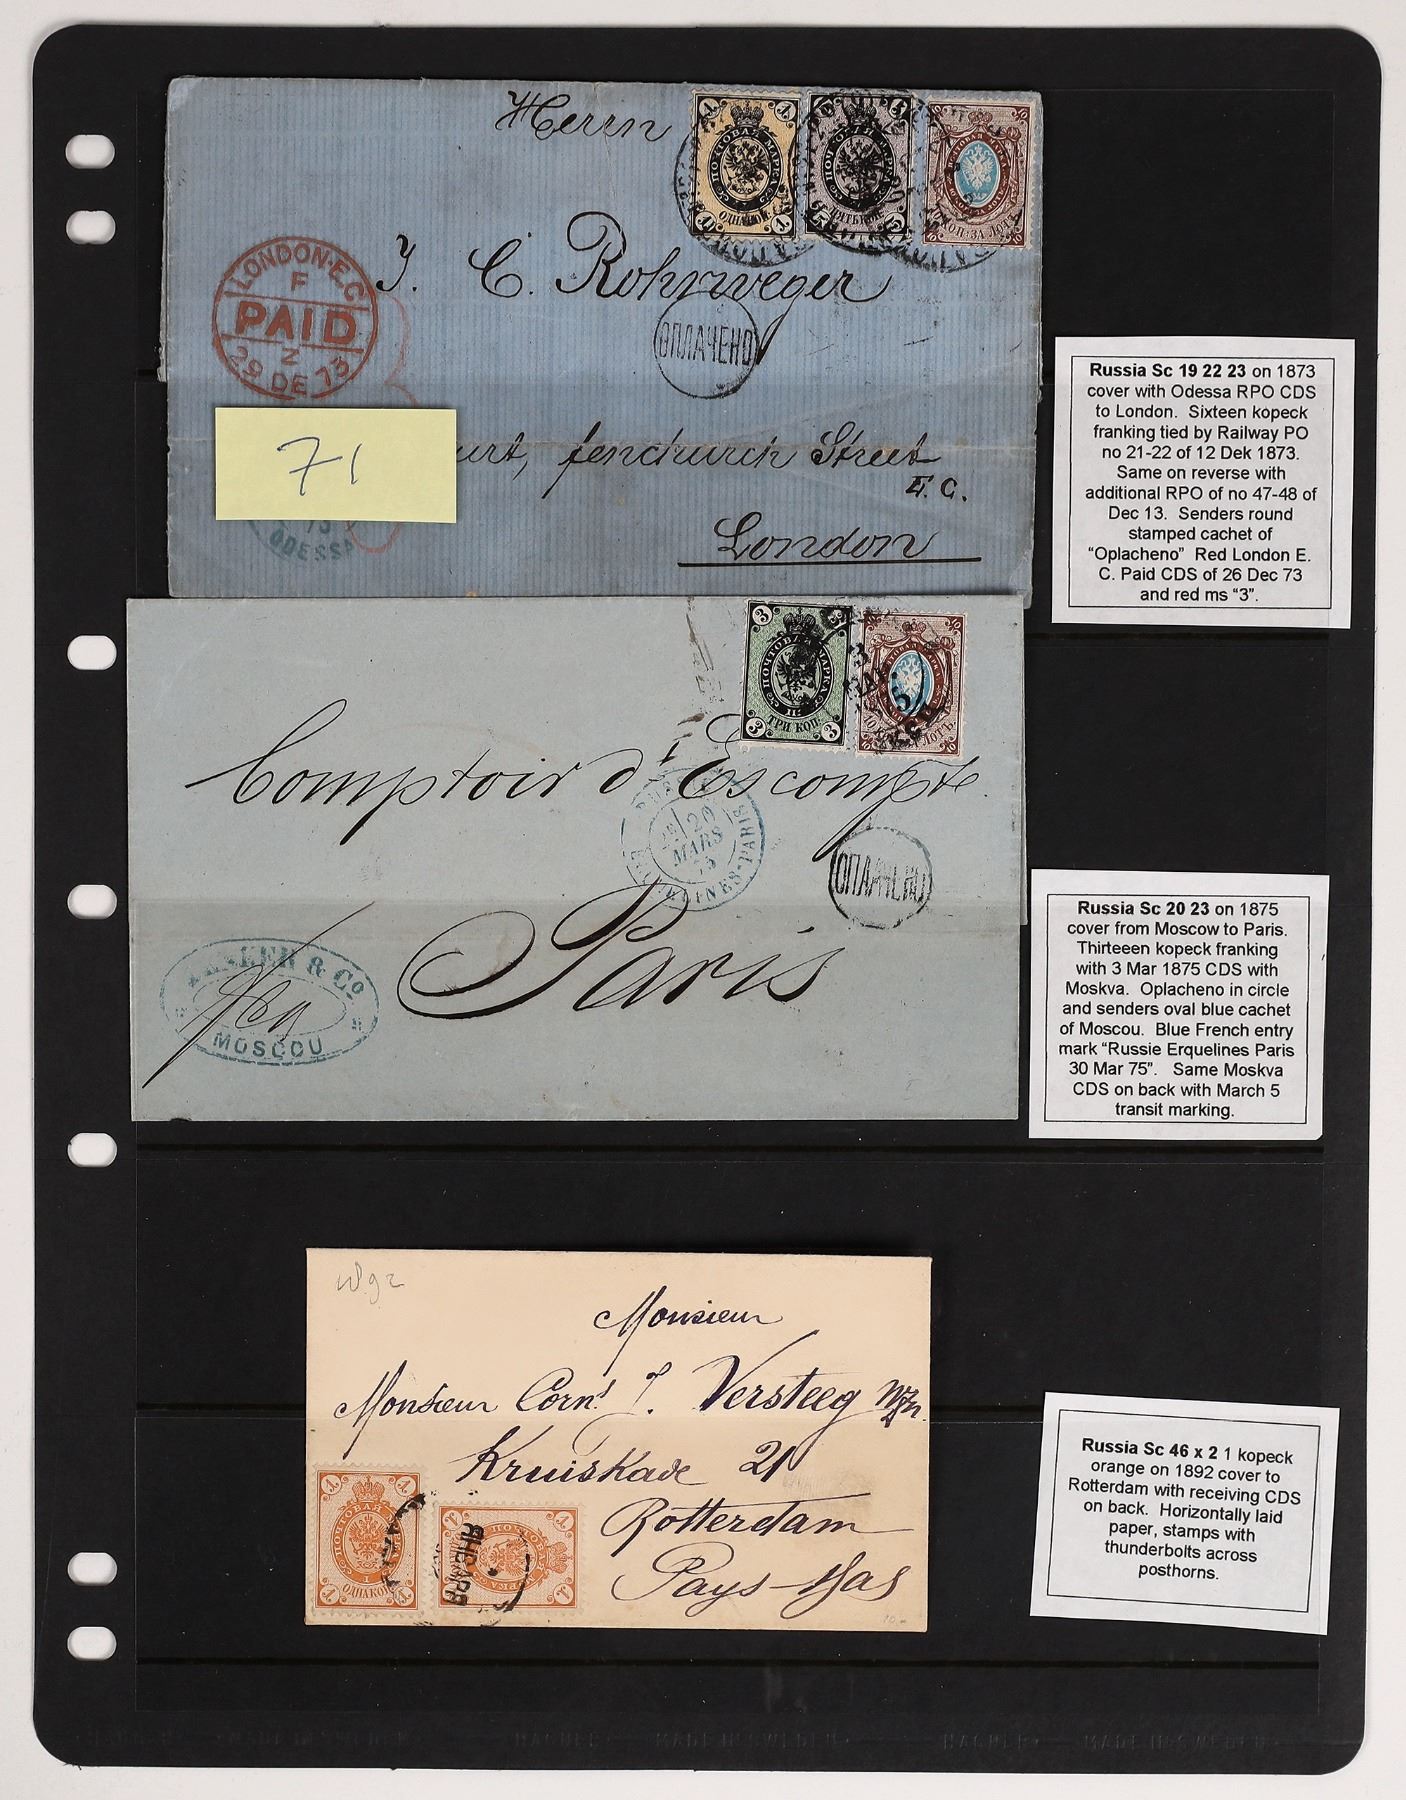 Herrn
J. C. Rohrweger
LONDON·E.C
F
PAID
Z
29 DE 73
ОПЛАЧЕНО
71
urt, fenchurch Street
E. C.
London
73
ODESSA
ПОЧТОВАЯ МАРКА
Russia Sc 19 22 23 on 1873
cover with Odessa RPO CDS
to London. Sixteen kopeck
franking tied by Railway PO
no 21-22 of 12 Dek 1873.
Same on reverse with
additional RPO of no 47-48 of
Dec 13. Senders round
stamped cachet of
“Oplacheno” Red London E.
C. Paid CDS of 26 Dec 73
and red ms “3”.
3 3
ПОЧТОВАЯ МАРКА
ТРИ КОП.
3 3
Comptoir d'Escompte
20
MARS
75
ERQUELINES·PARIS
ОПЛАЧЕНО
Paris
& Co
MOSCOU
Russia Sc 20 23 on 1875
cover from Moscow to Paris.
Thirteeen kopeck franking
with 3 Mar 1875 CDS with
Moskva. Oplacheno in circle
and senders oval blue cachet
of Moscou. Blue French entry
mark “Russie Erquelines Paris
30 Mar 75”. Same Moskva
CDS on back with March 5
transit marking.
Monsieur
Monsieur Corns J. Versteeg Wzn.
Kruiskade 21
Rotterdam
Pays-Bas
ПОЧТОВАЯ МАРКА
ЯНВАРЯ
10-
Russia Sc 46 x 2 1 kopeck
orange on 1892 cover to
Rotterdam with receiving CDS
on back. Horizontally laid
paper, stamps with
thunderbolts across
posthorns.
HAGNER MADE IN SWEDEN
HAGNER MADE IN SWEDEN